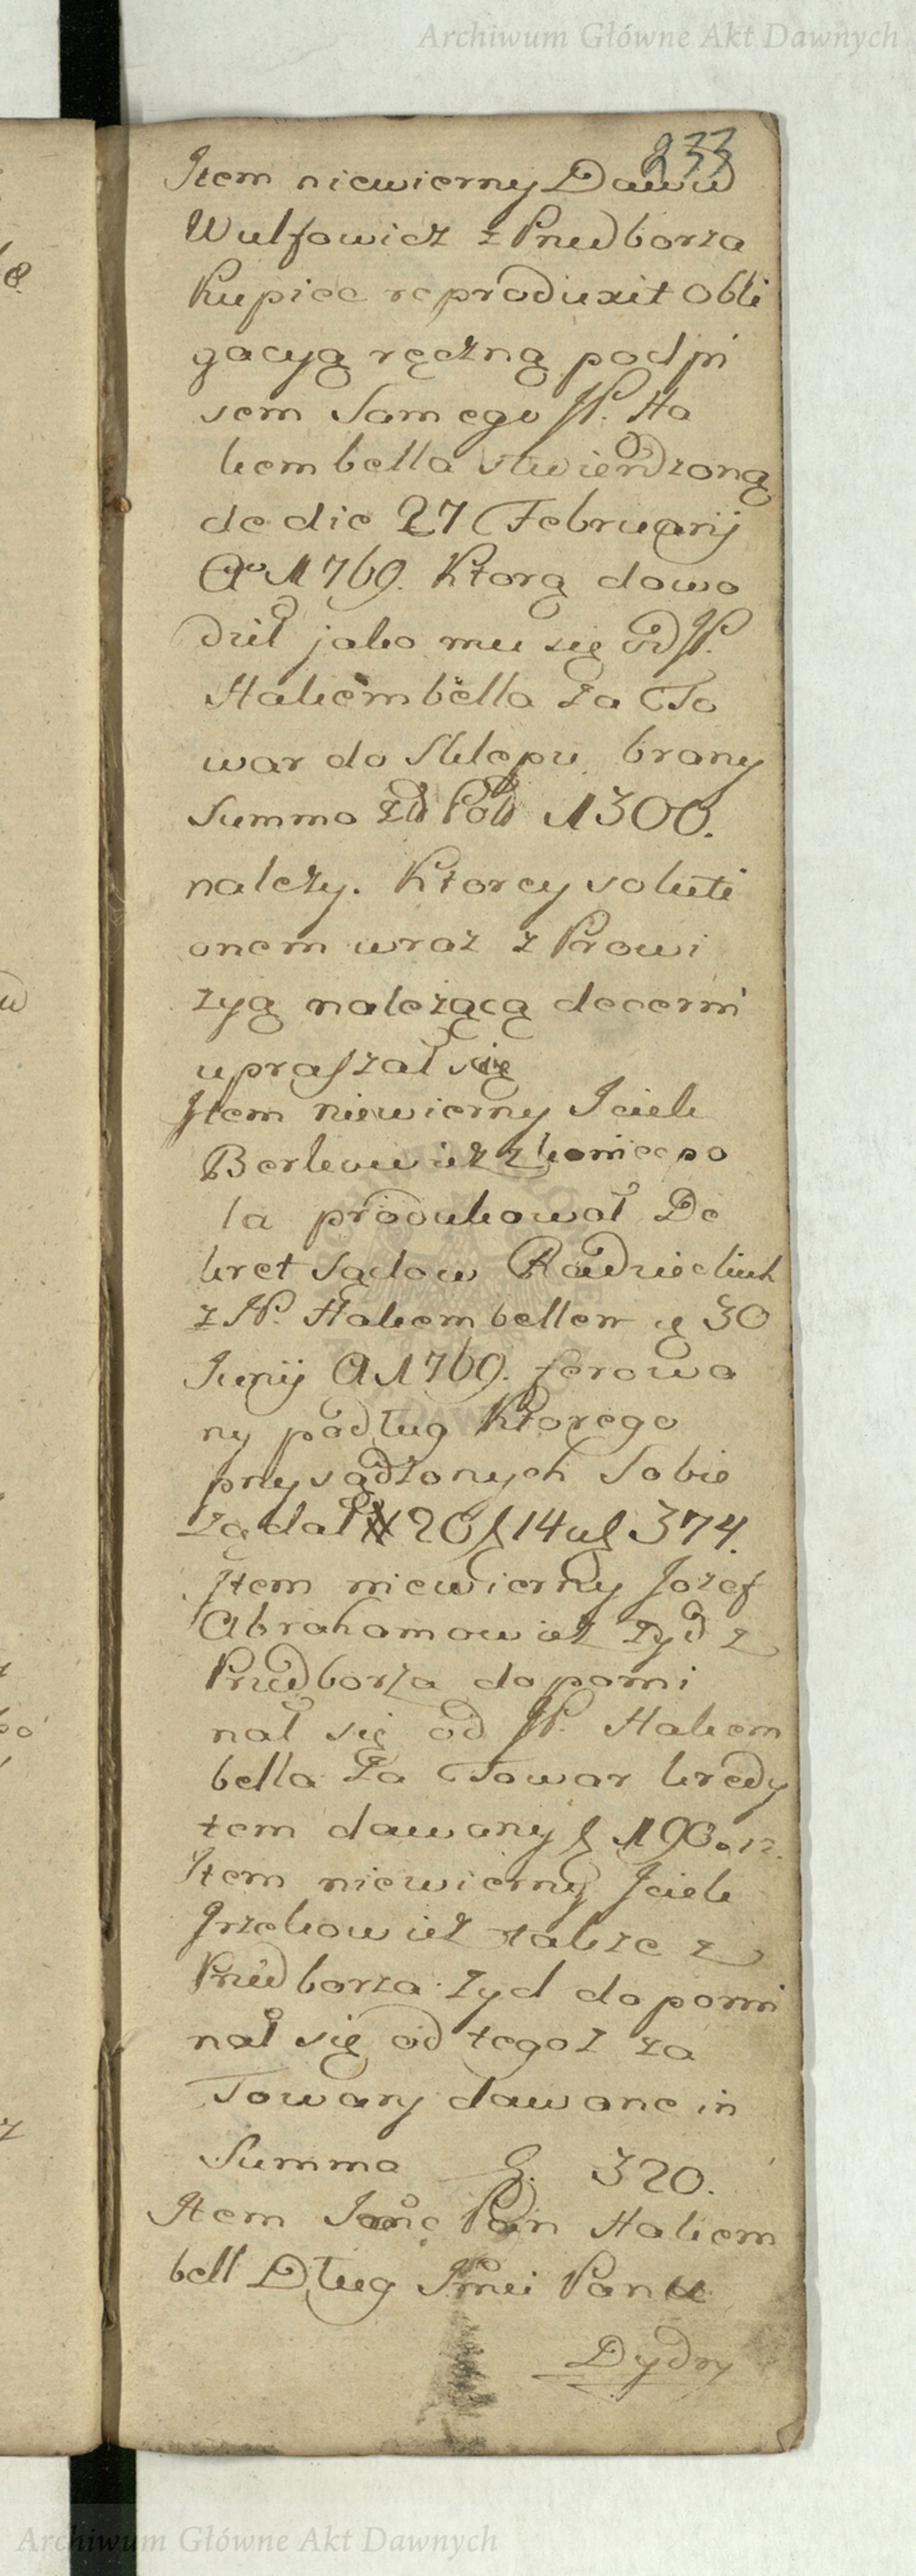 Archiwum Główne Akt Dawnych
833
Item niewierny Dawid
Wulfowicz z Przedborza
Kupiec reproduxit Obli
gacyą ręczną podpi
sem Samego JP. Ha
kembella stwierdzoną
de die 27 Februarij
Ao 1769. Ktorą dowo
dził jako mu się od JP.
Hakembella za To
war do Sklepu brany
Summa Zł Pol 1300.
należy. Ktorey soluti
onem wraz z Prowi
zyą należącą decerni
upraszał się
Item niewierny Iciek
Berkowicz z koniecpo
la produkował De
kret Sądow Radzieckich
z JP. Hakembellem 30
Junij A 1769. ferowa
ny podług Ktorego
przysądzonych Sobie
żądał 20 f 14 374.
Item niewierny Jozef
Abrahamowicz Zyd z
Przedborza dopomi
nał się od JP. Hakem
bella za Towar kredy
tem dawany f 190. 12.
Item niewierny Iciek
Jrzekowicz także z
Przedborza Zyd dopomi
nał się od tegoż za
Towary dawane in
Summa f. 320.
Item Jmć Pan Hakem
bell Dług Jmci Panu
Dydry
Archiwum Główne Akt Dawnych